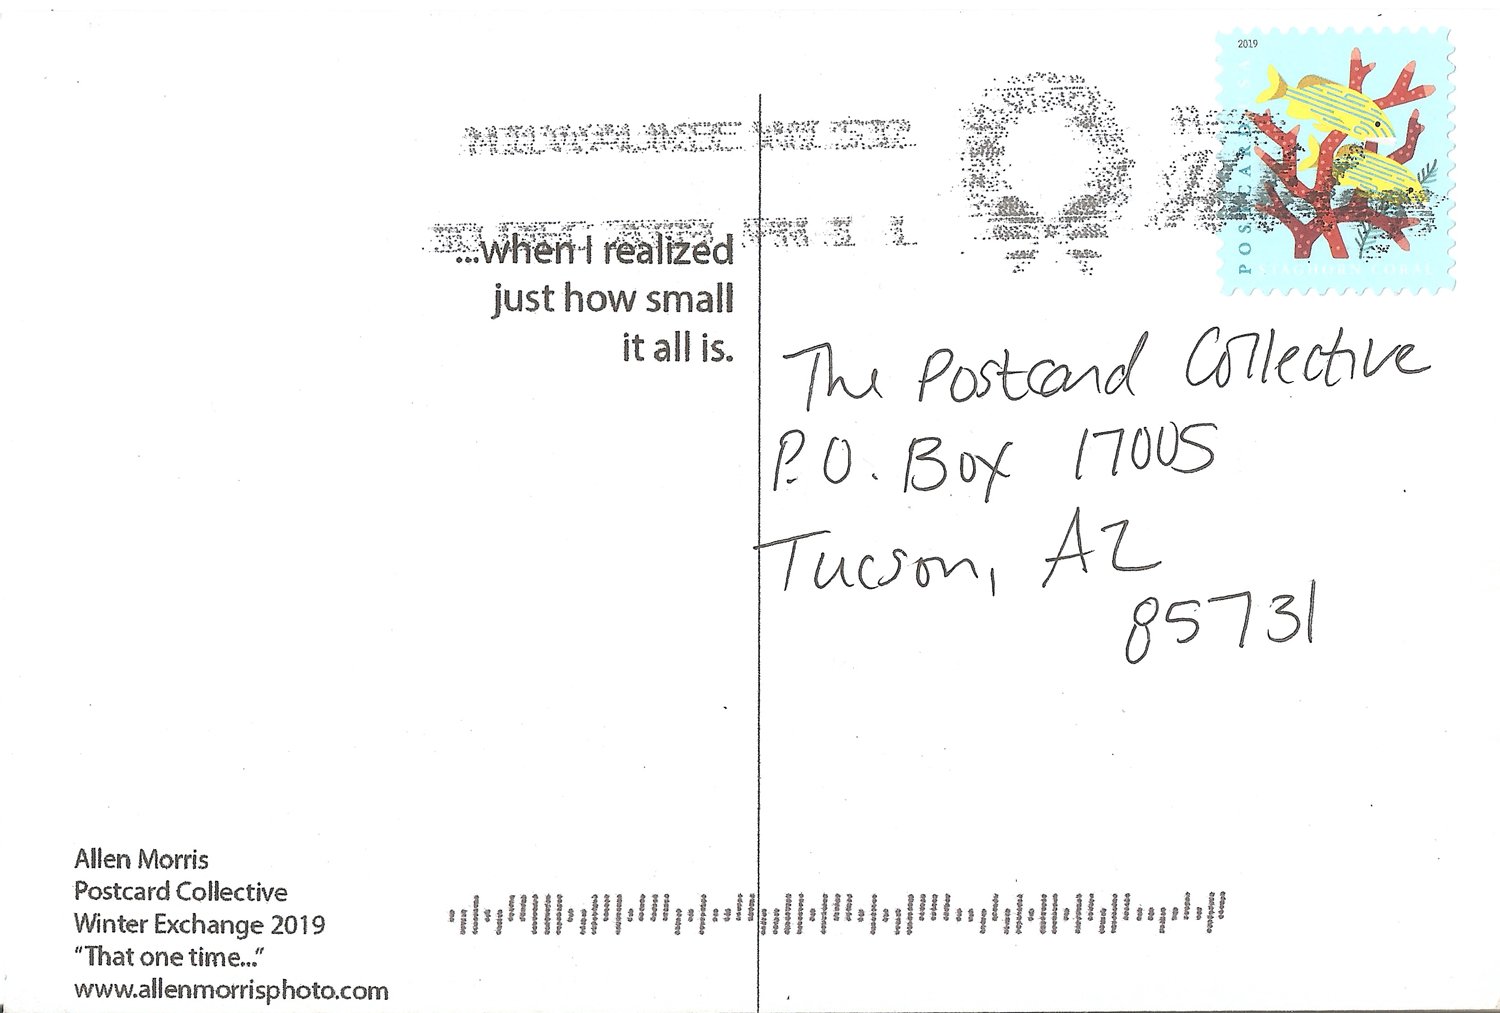 MILWAUKEE WI 532
2019
POSTCARD
STAGHORN CORAL
...when I realized
just how small
it all is.
The Postcard Collective
P.O. Box 17005
Tucson, AZ
85731
Allen Morris
Postcard Collective
Winter Exchange 2019
"That one time..."
www.allenmorrisphoto.com